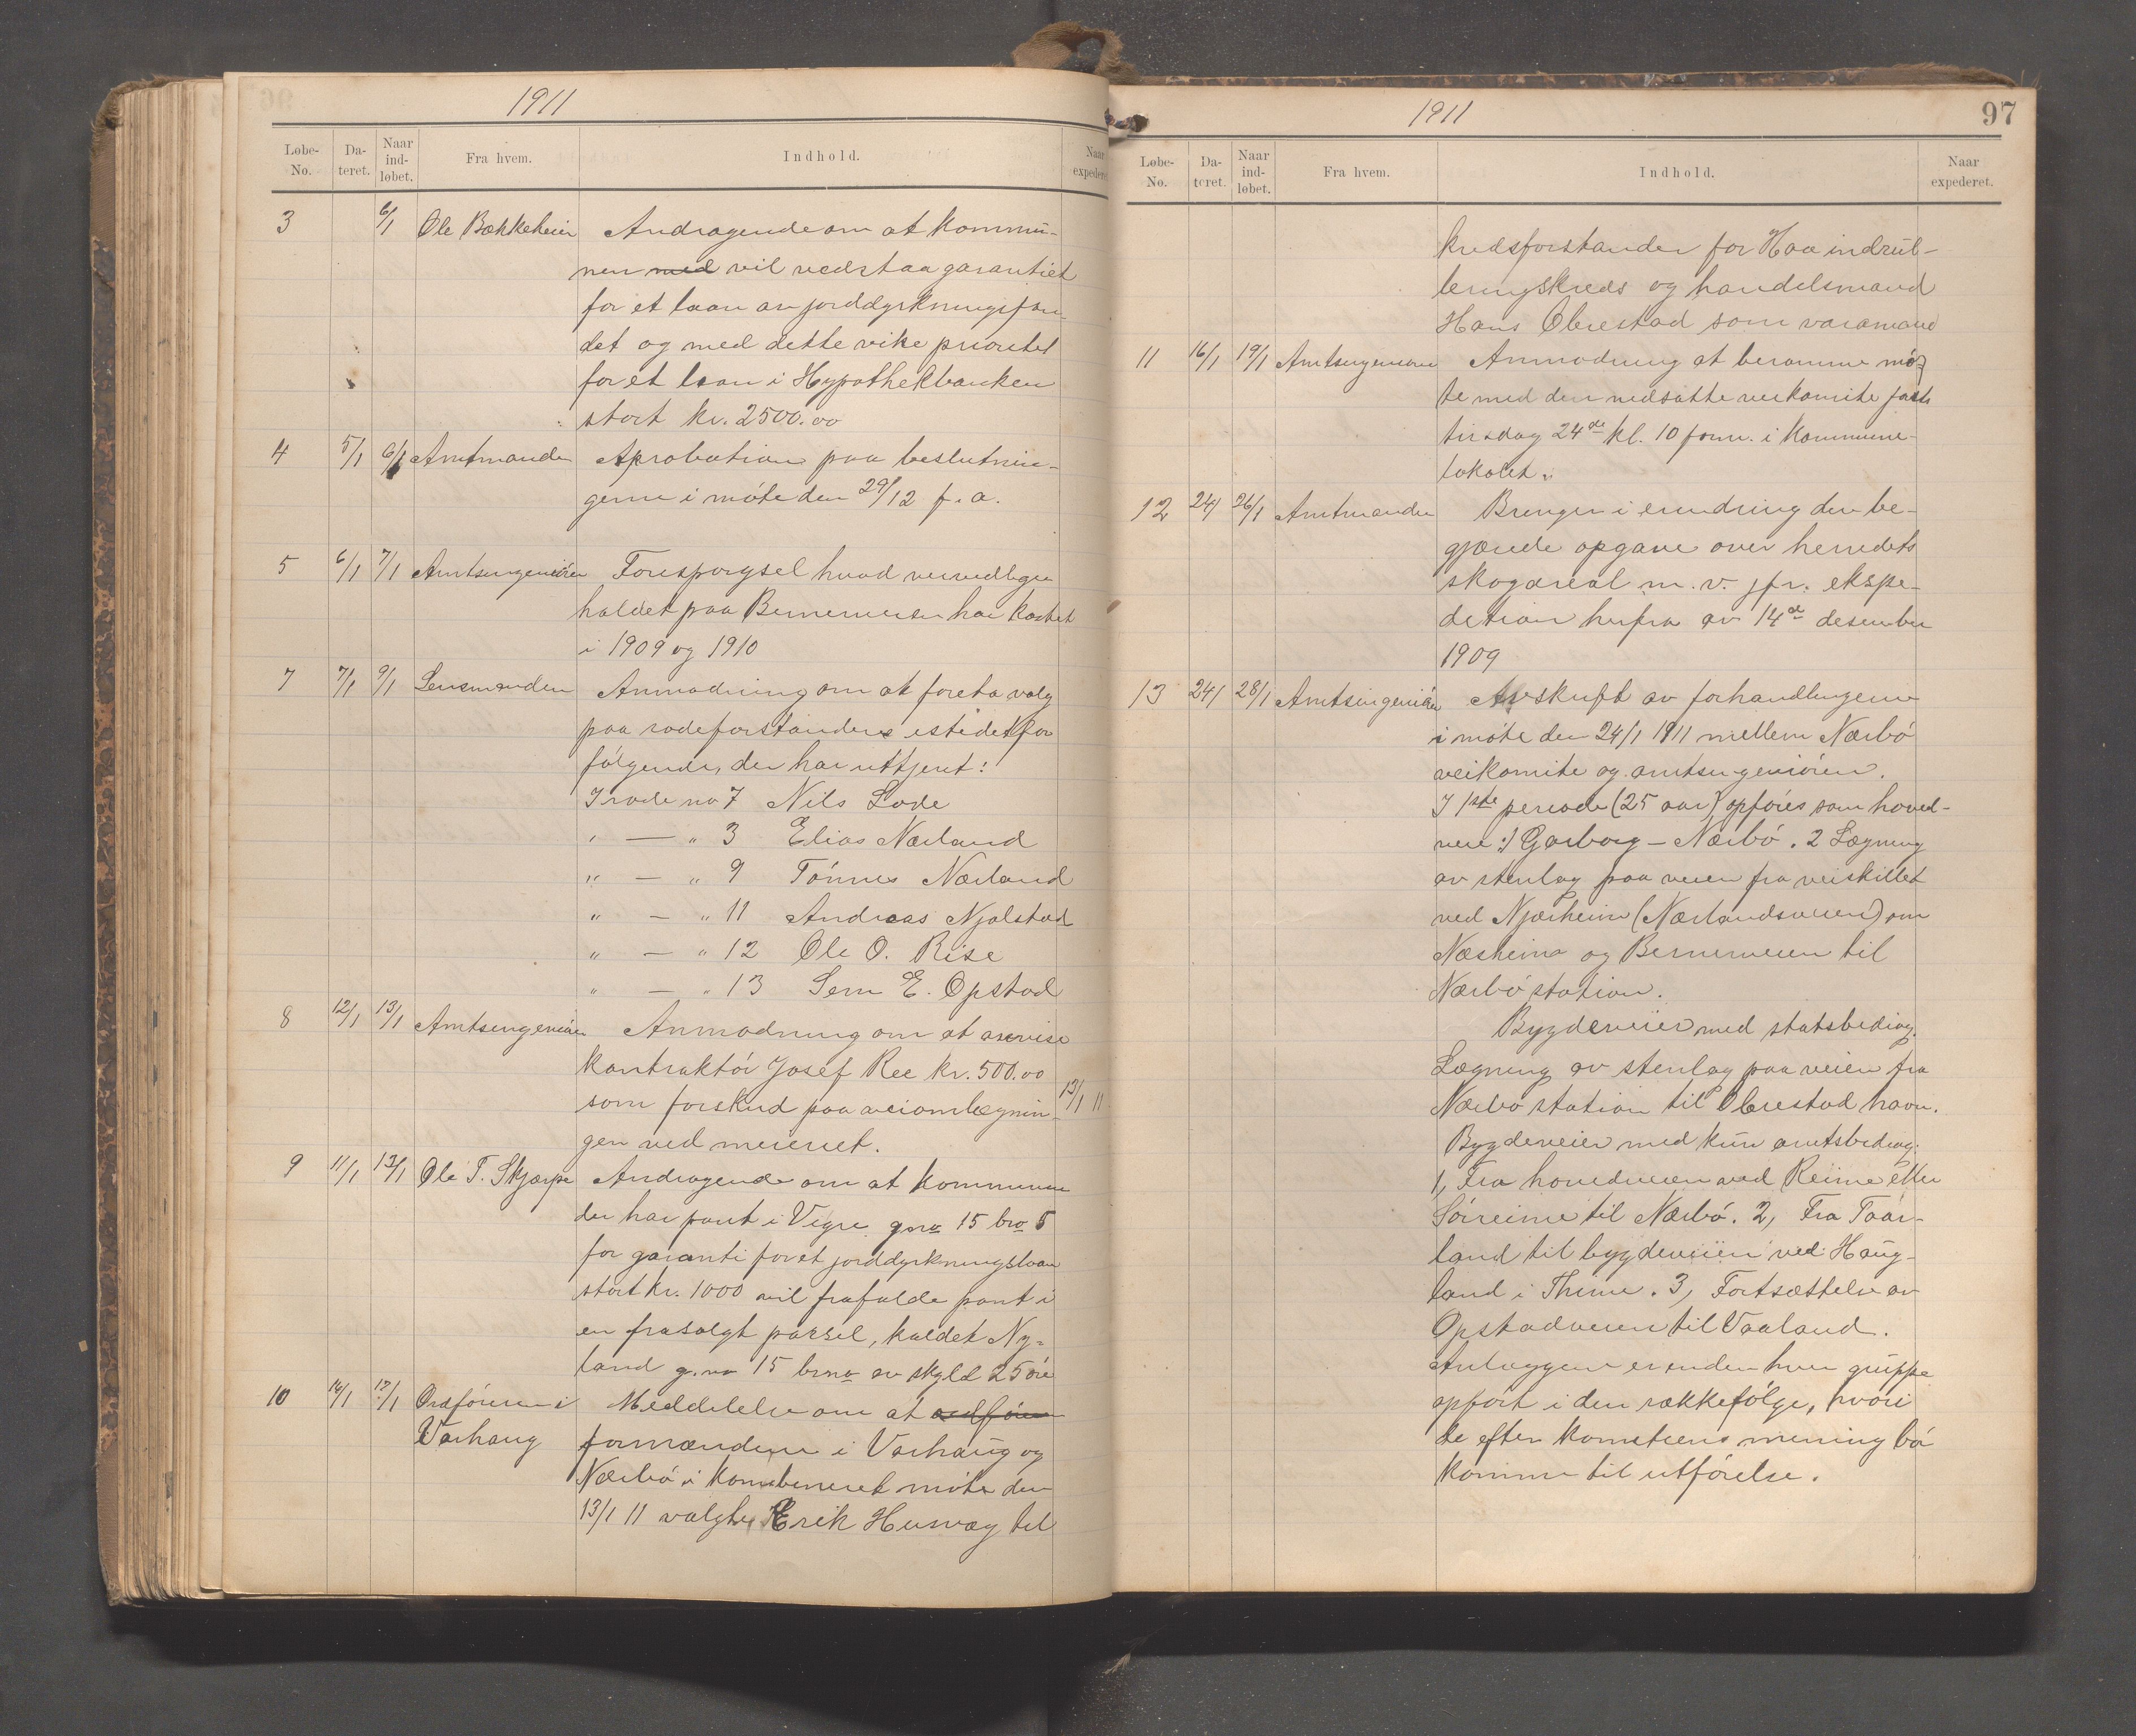 1911
Løbe-No. Da-teret. Naar ind-løbet. Fra hvem. Indhold. Naar expederet
3 6/1 Ole Bækkeheien Andragende om at kommu-
nen med vil vedstaa garantiet
for et laan av jorddyrkningsfon-
det og med dette vike prioritet
for et laan i Hypothekbanken
stort kr. 2500.00
4 5/1 6/1 Amtmanden Aprobation paa beslutnin-
gerne i møte den 29/12 f. a.
5 6/1 7/1 Amtsingeniøren Forespørgsel hvad veivedlige
holdet paa Bernerveien har kostet
i 1909 og 1910
7 7/1 9/1 Lensmanden Anmodning om at foreta valg
paa rodeforstandere istedet for
følgende, der har uttjent:
I rode no 7 Nils Lode
" — " 3 Elias Nærland
" — " 9 Tönnes Nærland
" — " 11 Andreas Njølstad
" — " 12 Ole O. Rise
" — " 13 Sem E. Opstad
8 12/1 13/1 Amtsingeniøren Anmodning om at anvise
kontraktör Josef Ree kr. 500.00
som forskud paa veiomlægnin- 13/1 11
gen ved meieriet.
9 11/1 13/1 Ole T. Skjærpe Andragende om at kommunen
der har pant i Vigre gno 15 bno 5
for garanti for et jorddyrkningslaan
stort kr. 1000 vil frafalde pant i
en frasolgt parsel, kaldet Ny-
land g.no 15 bno av skyld 25 øre
10 14/1 17/1 Ordføreren i Meddelelse om at ordføren
Varhaug formændene i Varhaug og
Nærbø i kombineret møte den
13/1 11 valgte Erik Husvæg til
1911
97
Løbe-No. Da-teret. Naar ind-løbet. Fra hvem. Indhold. Naar expederet.
kredsforstander for Haa indrul-
leringskreds og handelsmand
Hans Obrestad som varamand
11 16/1 19/1 Amtsingeniøren Anmodning at beramme mö-
te med den nedsatte veikomite förste
tirsdag 24de kl. 10 form. i kommune-
lokalet.
12 24/ 26/1 Amtmanden Bringer i erindring den be-
gjærede opgave over herredets
skogareal m. v. jfr. ekspe-
dition herfra av 14de desember
1909
13 24/ 28/1 Amtsingeniøren Avskrift av forhandlingerne
i møte den 24/1 1911 mellem Nærbö
veikomite og amtsingeniören.
I 1ste periode (25 aar) opföres som hoved-
veie: 1/ Garborg — Nærbö. 2 Lægning
av stenlag paa veien fra veiskillet
ved Njærheim (Nærlandsveien) om
Næsheim og Bernerveien til
Nærbö station.
Bygdeveier med statsbedrag.
Lægning av stenlag paa veien fra
Nærbø station til Obrestad havn.
Bygdeveier med kun amtsbidrag.
1, Fra hovedveien ved Reime eller
Söreime til Nærbö. 2, Fra Taar-
land til bygdeveien ved Haug-
land i Thime. 3, Fortsættelse av
Opstadveien til Vaaland.
Anlæggene er under hver gruppe
opfört i den rækkefölge, hvori
de efter komiteens mening bör
komme til utförelse.